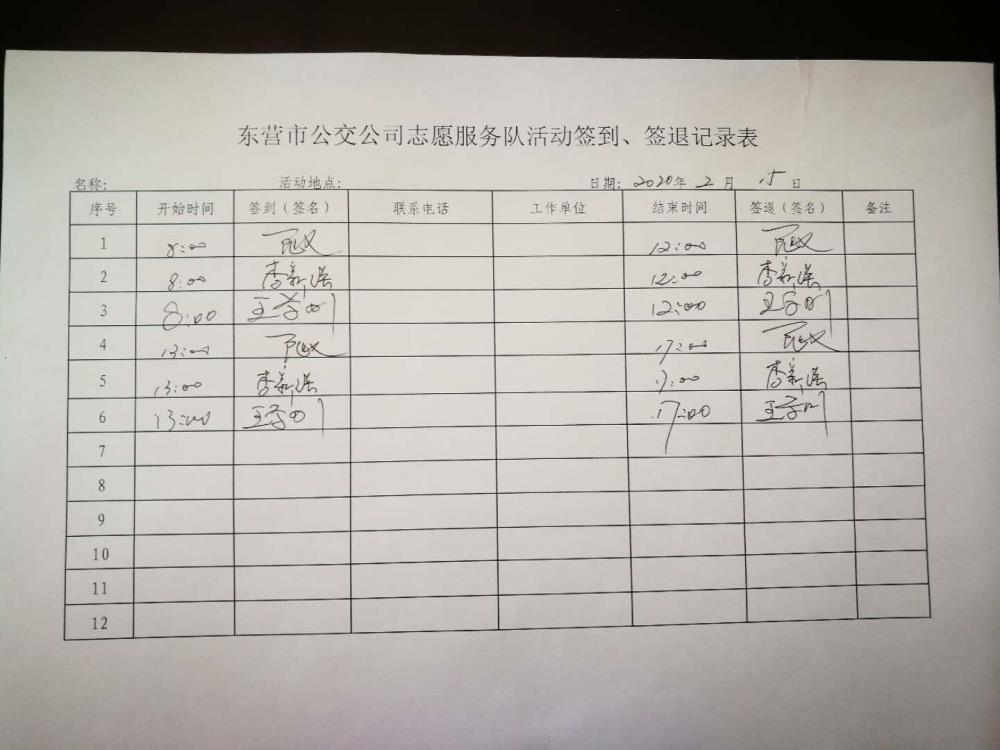 东营市公交公司志愿服务队活动签到、签退记录表
名称: 活动地点: 日期: 2020年 2月 15日
序号 开始时间 签到（签名） 联系电话 工作单位 结束时间 签退（签名） 备注
1 8:00 12:00
2 8:00 李新洪 12:00 李新洪
3 8:00 王学明 12:00 王学明
4 13:00 17:00
5 13:00 李新洪 17:00 李新洪
6 13:00 王学明 17:00 王学明
7
8
9
10
11
12